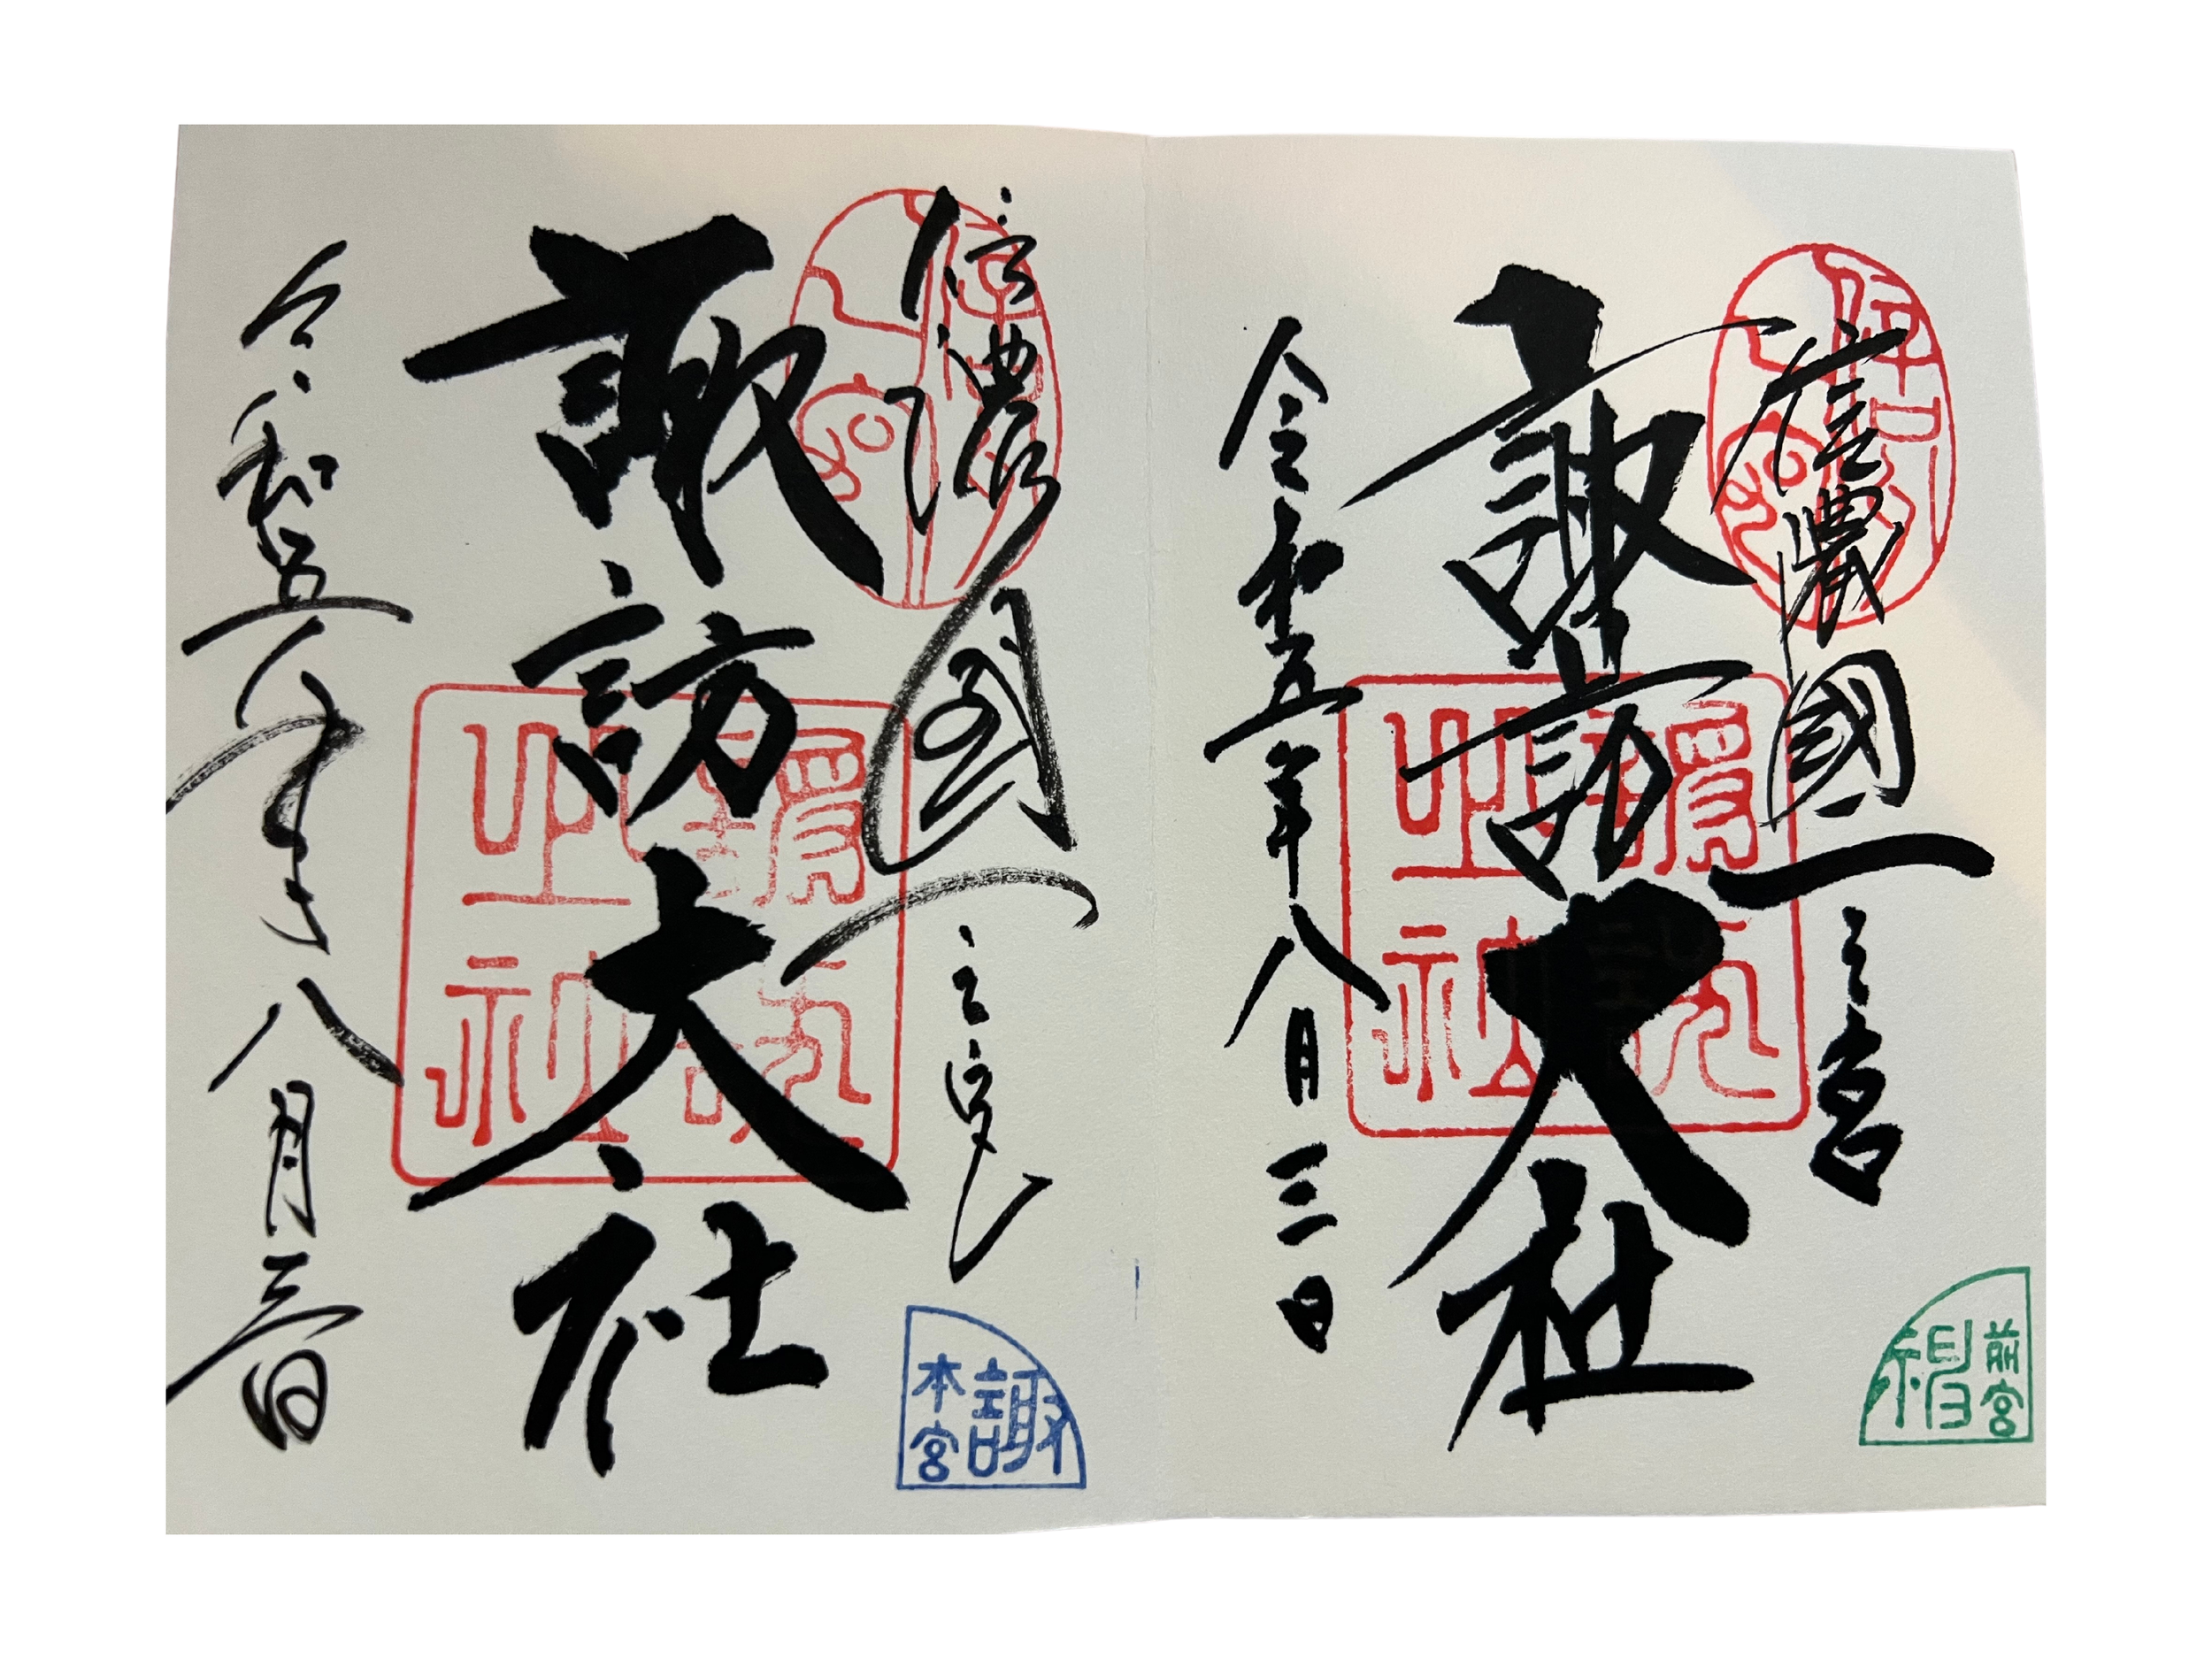 信濃國一之宮
諏訪大社
令和五年八月三日
前宮
信濃国一之宮
諏訪大社
令和五年八月三日
諏
本宮